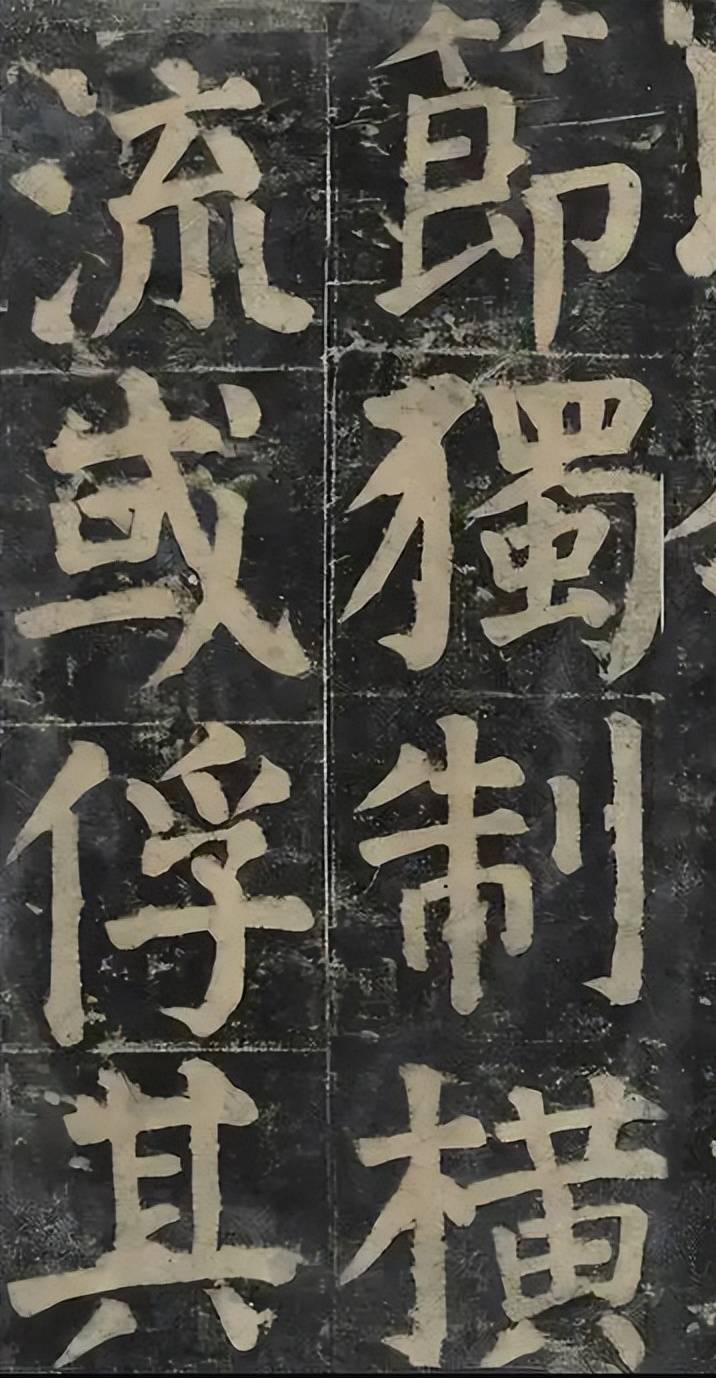 節獨制橫
流或俘其